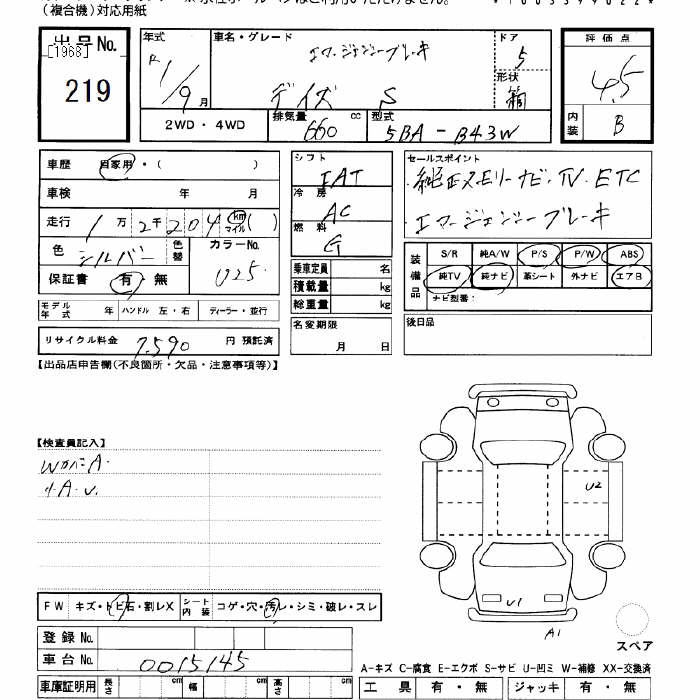 (複合機)対応用紙
出品No.
[1968]
219
年式
R 1/9月
車名・グレード
エマージェンシーブレーキ
デイズ S
ドア
5
形状
箱
評価点
4.5
内装
B
2WD・4WD
排気量 cc
660
型式
5BA-B43W
車歴 自家用・( )
車検 年 月
走行 1万2千204 km マイル ( )
色 シルバー 色替
カラーNo.
U25
保証書 有・無
モデル年式 年 ハンドル 左・右 ディーラー・並行
リサイクル料金 7,590 円 預託済
シフト
IAT
冷房
AC
燃料
G
乗車定員 名
積載量 kg
総重量 kg
名変期限
月 日
セールスポイント
・純正メモリーナビ・TV・ETC
・エマージェンシーブレーキ
装備品
S/R 純A/W P/S P/W ABS
純TV 純ナビ 革シート 外ナビ エアB
ナビ型番:
後日品
【出品店申告欄(不良箇所・欠品・注意事項等)】
【検査員記入】
U2
U1
A1
スペア
FW キズ・トビ石・割レX
シート内装 コゲ・穴・汚レ・シミ・破レ・スレ
登録No.
車台No. 0015145
車庫証明用 長さ cm 幅 cm 高さ cm
A-キズ C-腐食 E-エクボ S-サビ U-凹ミ W-補修 XX-交換済
工具 有・無 ジャッキ 有・無